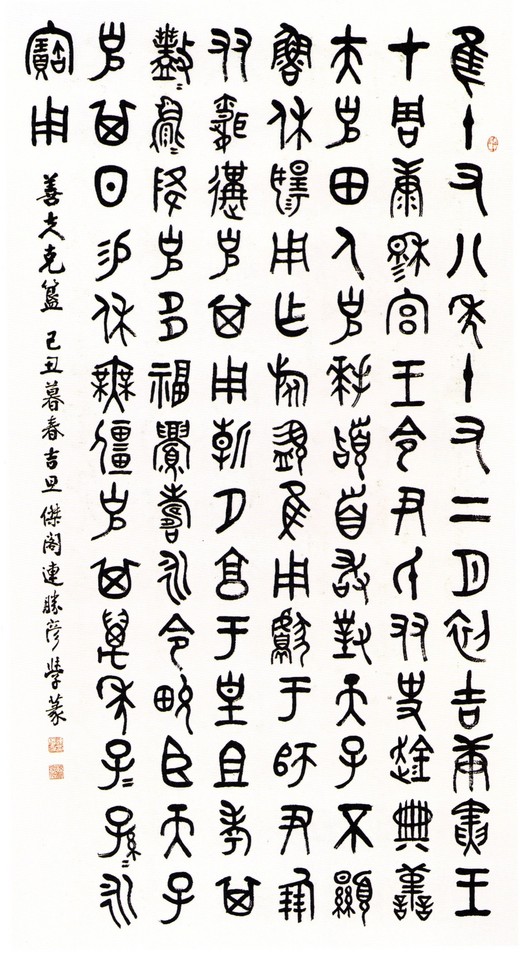 隹十又八年十又二月初吉庚寅王
才周康穆宮王令尹氏友史趛典善
夫克田人克拜稽首敢對天子不顯
魯休揚用乍旅盨隹用獻于師尹朋
友婚遘克其用朝夕享于皇且考其
數=彙=降克多福眉壽永令畯臣天子
克其日易休無疆克其萬年子=孫=永
寶用
善夫克盨 己丑暮春吉旦 傑閣連勝彥學篆